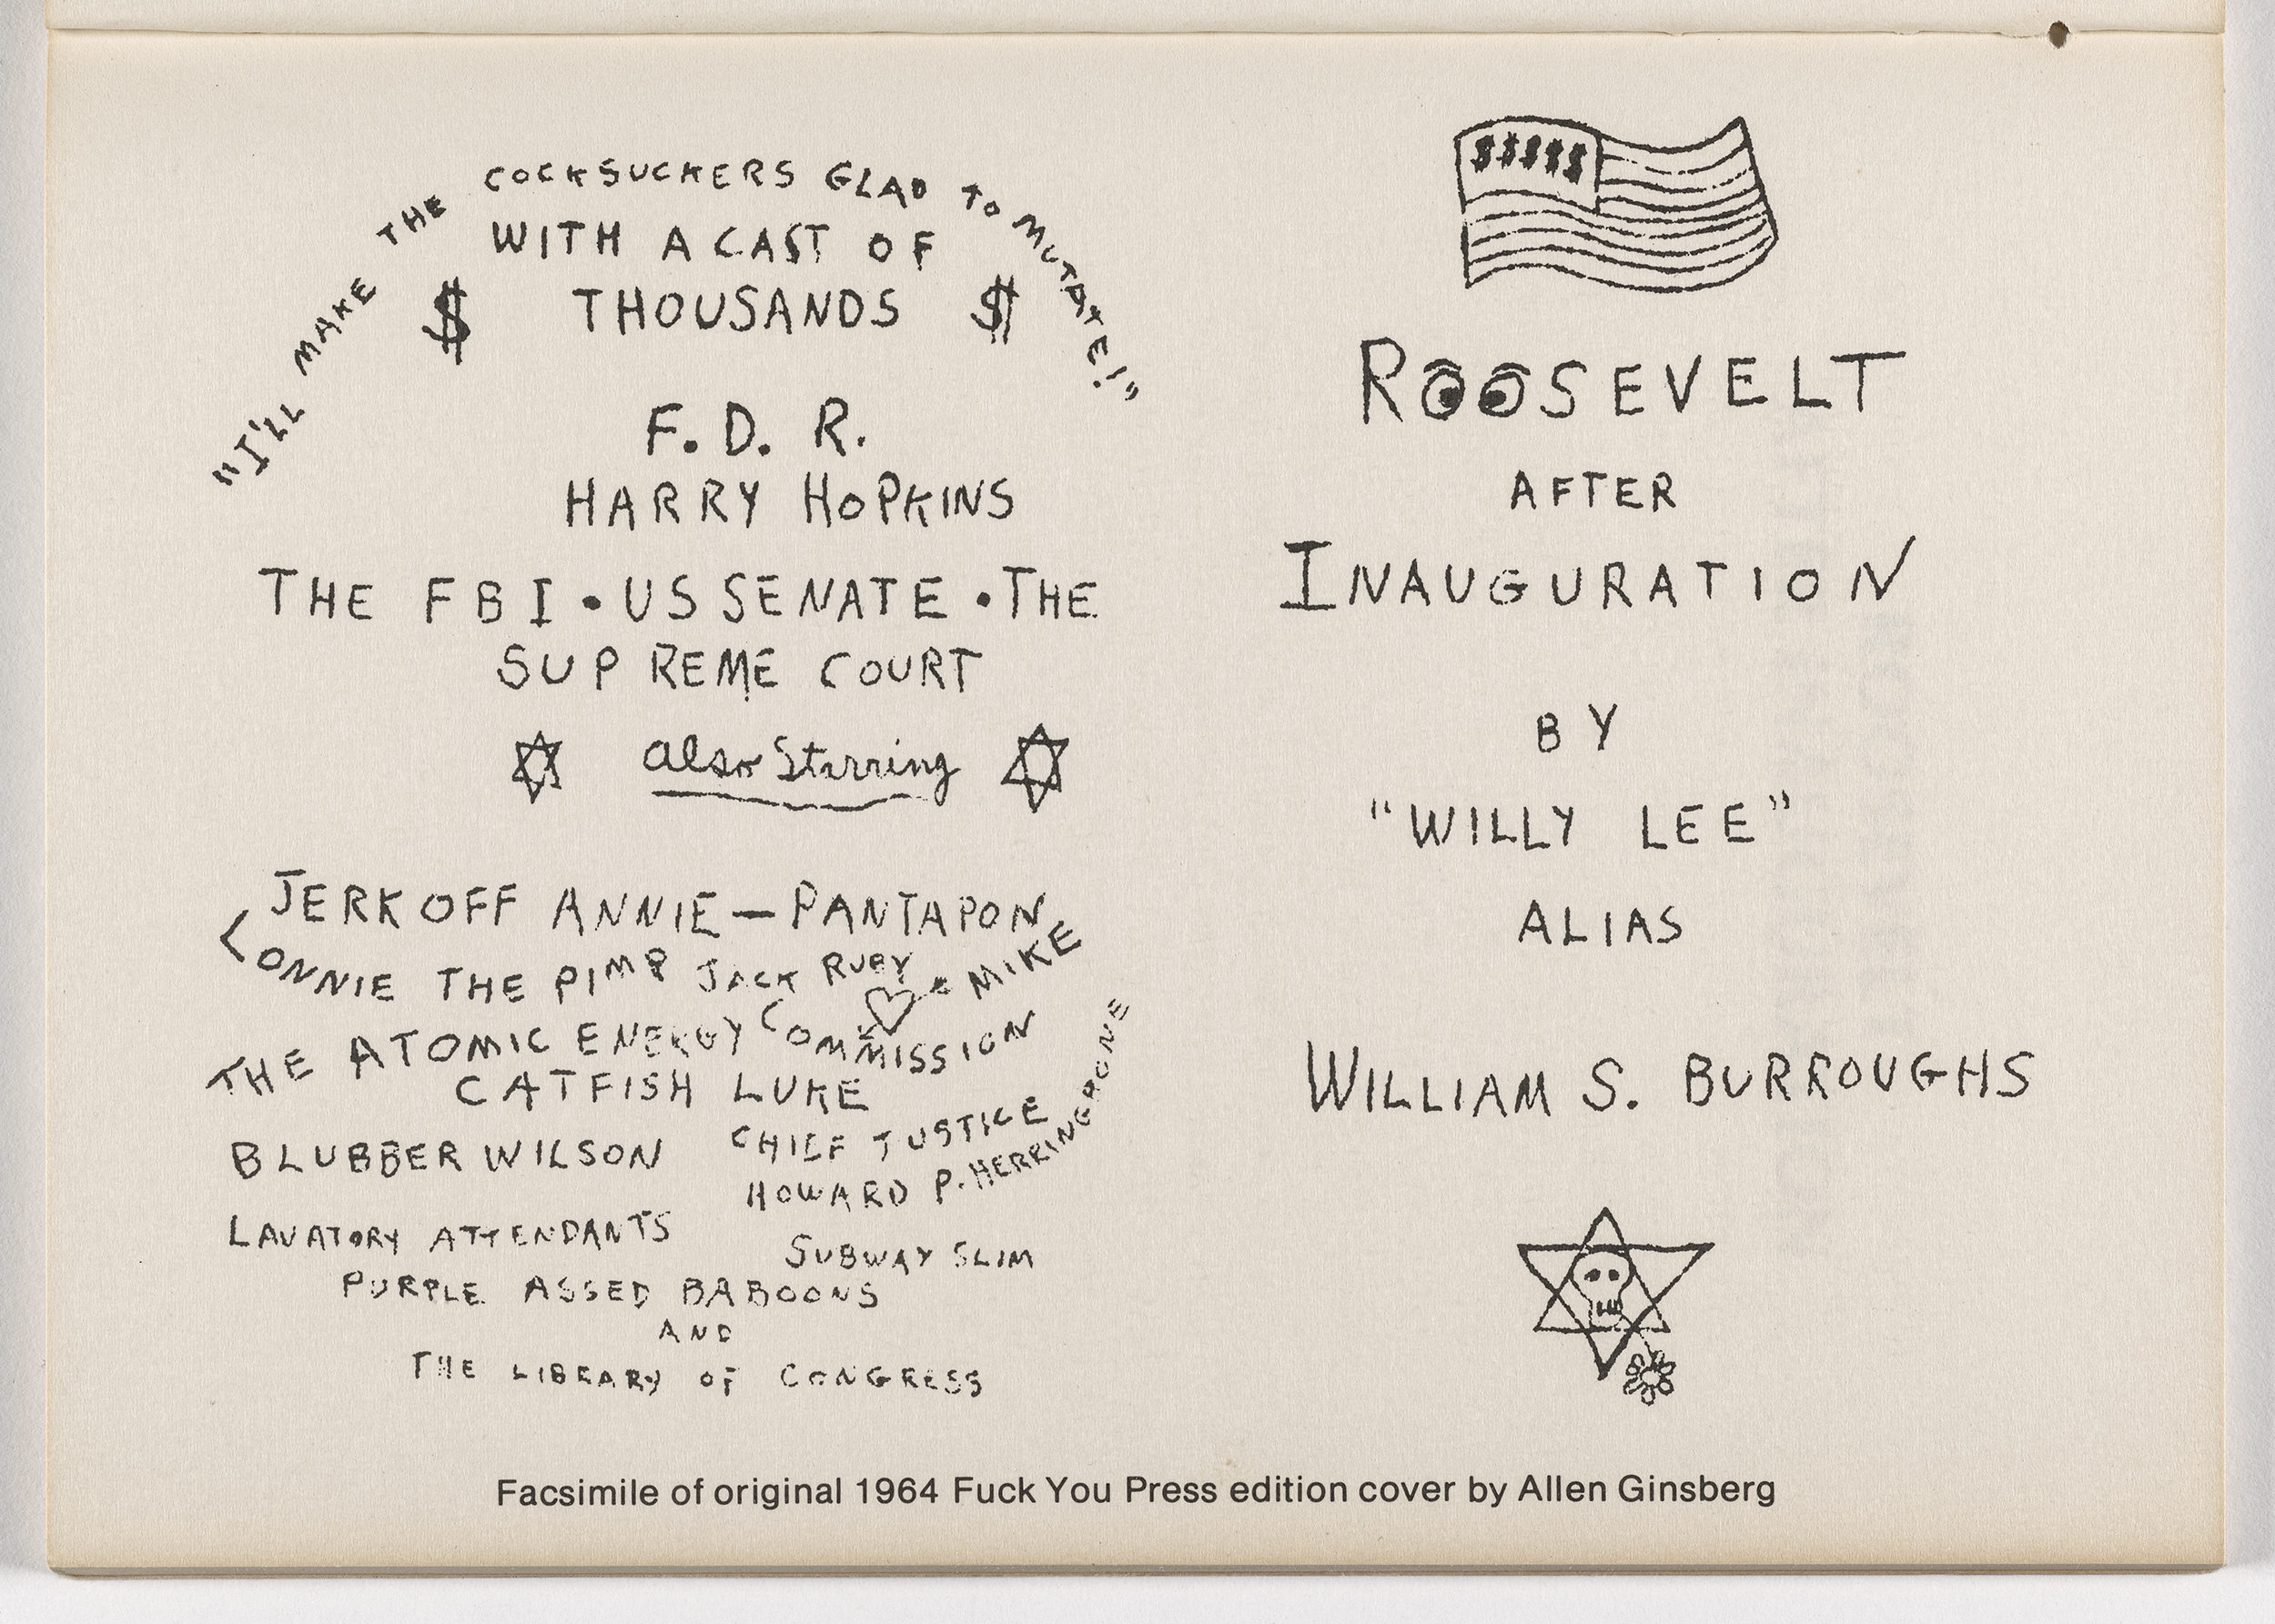 "I'LL MAKE THE COCKSUCKERS GLAD TO MUTATE!"
WITH A CAST OF
$ THOUSANDS $
F. D. R.
HARRY HOPKINS
THE FBI • US SENATE • THE
SUPREME COURT
Also Starring
JERK OFF ANNIE — PANTAPON
LONNIE THE PIMP JACK RUBY MIKE
THE ATOMIC ENERGY COMMISSION
CATFISH LUKE
BLUBBER WILSON
CHIEF JUSTICE
HOWARD P. HERRINGBONE
LAVATORY ATTENDANTS
SUBWAY SLIM
PURPLE ASSED BABOONS
AND
THE LIBRARY OF CONGRESS
$$$$$
ROOSEVELT
AFTER
INAUGURATION
BY
"WILLY LEE"
ALIAS
WILLIAM S. BURROUGHS
Facsimile of original 1964 Fuck You Press edition cover by Allen Ginsberg